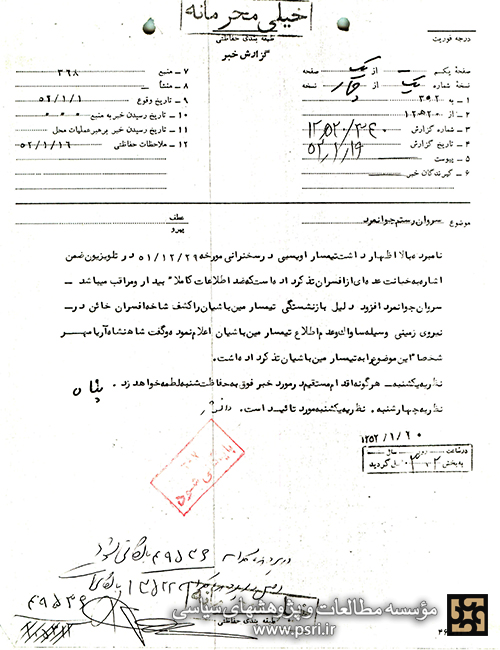 خیلی محرمانه
طبقه بندی حفاظتی
گزارش خبر
درجه فوریت
صفحه یکم - از یک صفحه
نسخه شماره یک از چهار نسخه
۱ - به ۳۰۲
۲ - از ۲۰ه۱۲
۳ - شماره گزارش
۴ - تاریخ گزارش ۵۲/۱/۱۹
۵ - پیوست
۶ - گیرندگان خبر
۷ - منبع ۳۶۸
۸ - منشأ
۹ - تاریخ وقوع ۵۲/۱/۱
۱۰ - تاریخ رسیدن خبر به منبع ۰۰۰
۱۱ - تاریخ رسیدن خبر برهبر عملیات محل
۱۲ - ملاحظات حفاظتی ۵۲/۱/۱۶
موضوع سروان رستم جوانمرد
عطف
پیرو
نامبرده بالا اظهار داشت تیمسار اویسی در سخنرانی مورخه ۵۱/۱۲/۲۹ در تلویزیون ضمن
اشاره به خیانت عده ای از افسران تذکر داده است که ضد اطلاعات کاملا" بیدار و مراقب میباشد -
سروان جوانمرد افزود دلیل بازنشستگی تیمسار مین باشیان را کشف شاخه افسران خائن در -
نیروی زمینی وسیله ساواک و عدم اطلاع تیمسار مین باشیان اعلام نموده و گفت شاهنشاه آریامهر
شخصا" این موضوع را به تیمسار مین باشیان تذکر داده است.
نظریه یکشنبه - هرگونه اقدام مستقیم در مورد خبر فوق به حفاظت شنبه لطمه خواهد زد.
نظریه چهارشنبه. نظریه یکشنبه مورد تائید است.
۱۳۵۲/۱/۲۰
در ساعت روز سال
به بخش گردید
بایگانی شود
در پرونده کلاسه ۴۹۵۳۶ بایگانی شود
۴۹۵۳۶
طبقه بندی حفاظتی
مؤسسه مطالعات و پژوهشهای سیاسی
www.psri.ir
۴۶